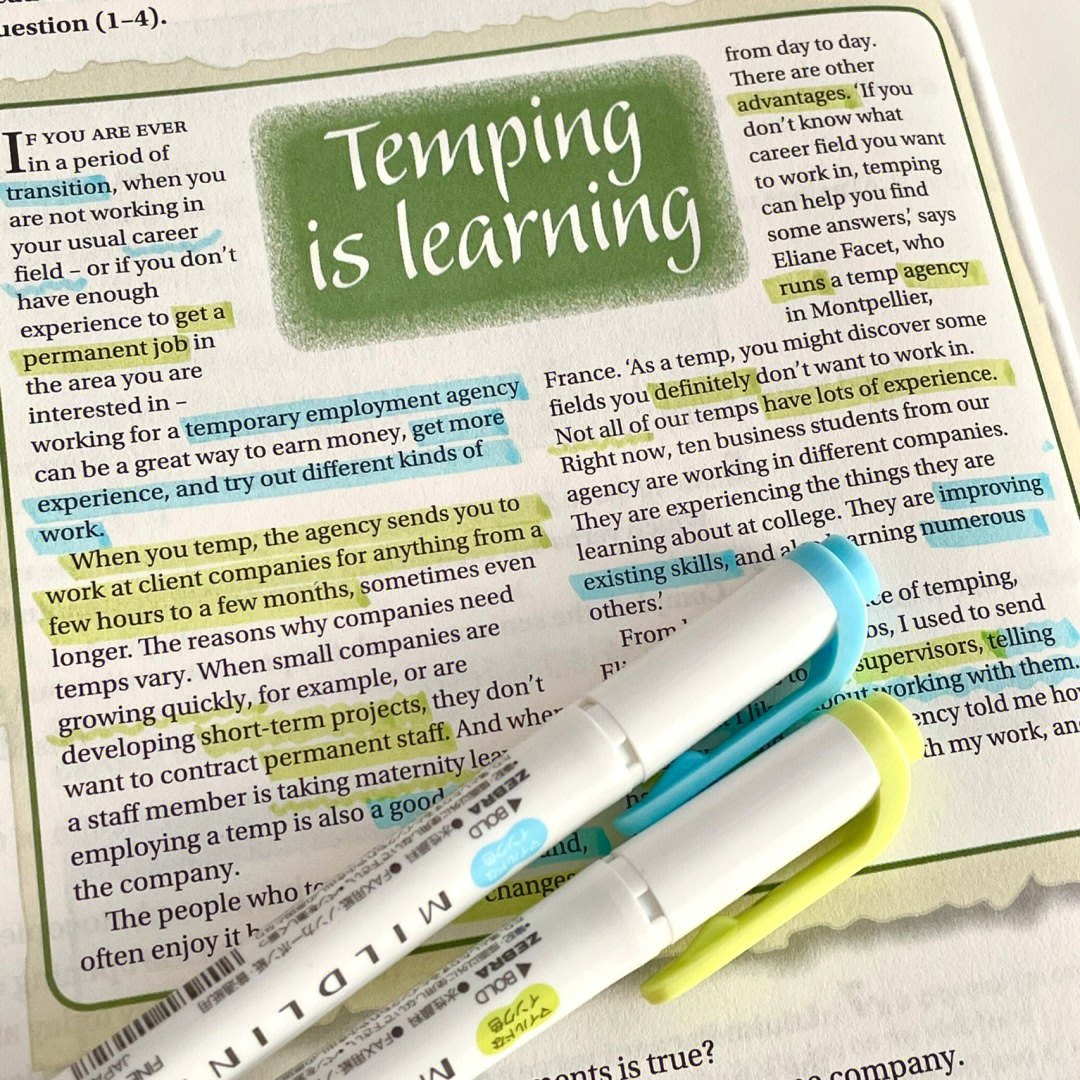 uestion (1–4).
Temping
is learning
IF YOU ARE EVER
in a period of
transition, when you
are not working in
your usual career
field – or if you don't
have enough
experience to get a
permanent job in
the area you are
interested in –
working for a temporary employment agency
can be a great way to earn money, get more
experience, and try out different kinds of
work.
When you temp, the agency sends you to
work at client companies for anything from a
few hours to a few months, sometimes even
longer. The reasons why companies need
temps vary. When small companies are
growing quickly, for example, or are
developing short-term projects, they don't
want to contract permanent staff. And when
a staff member is taking maternity lea
employing a temp is also a good
the company.
The people who
often enjoy it
and,
changes
from day to day.
There are other
advantages. 'If you
don't know what
career field you want
to work in, temping
can help you find
some answers,' says
Eliane Facet, who
runs a temp agency
in Montpellier,
France. 'As a temp, you might discover some
fields you definitely don't want to work in.
Not all of our temps have lots of experience.
Right now, ten business students from our
agency are working in different companies.
They are experiencing the things they are
learning about at college. They are improving
existing skills, and al arning numerous
others.'
From ce of temping,
os, I used to send
to supervisors, telling
out working with them.
ency told me ho
h my work, an
ZEBRA
BOLD
マイルドな
インク色
MILDLIN
ZEBRA
BOLD
マイルドな
インク色
M
FINE
JAPA
ents is true?
company.